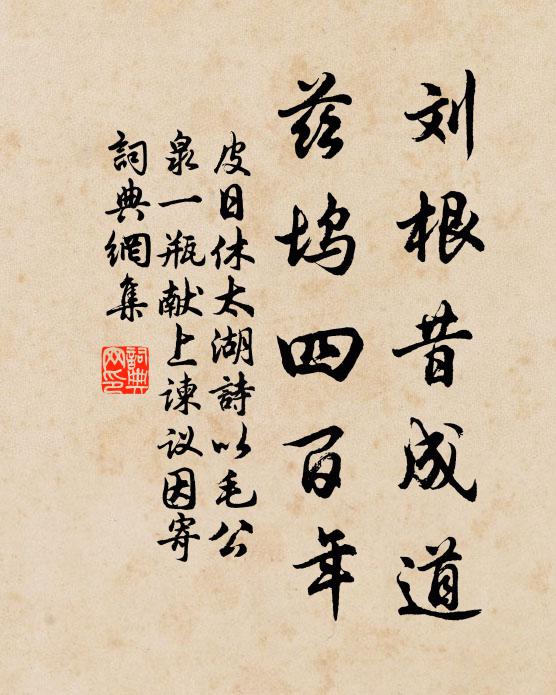 刘根昔成道
茲坞四百年
皮日休太湖詩以毛公
泉一瓶献上諫议因寄
詞典網集
詞典
网印